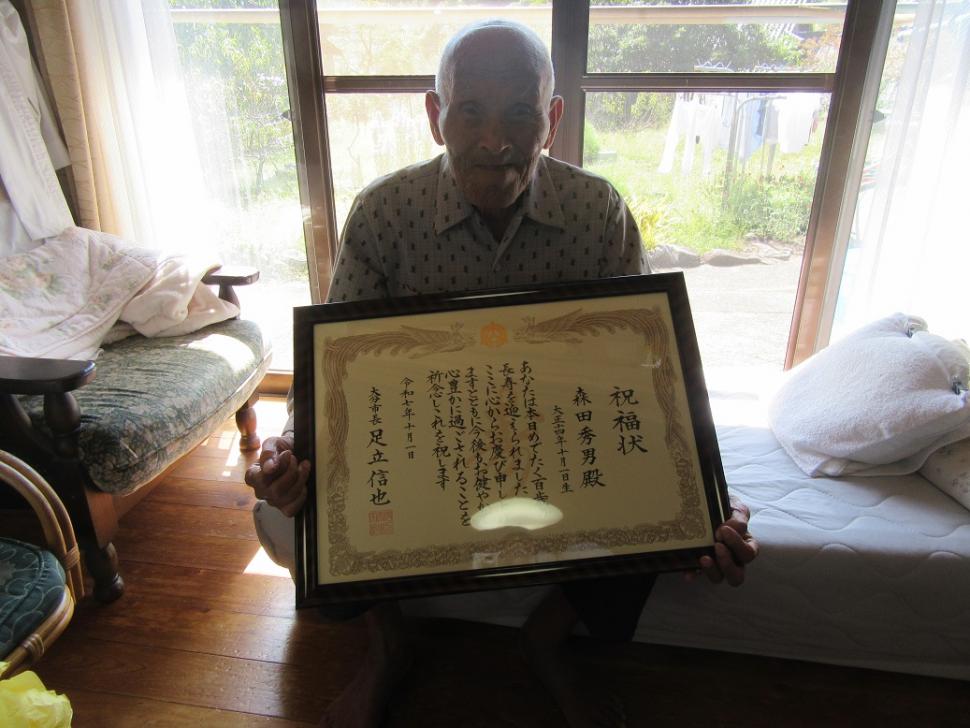 祝福状
森田秀男殿
大正十四年十月一日生
あなたは本日めでたく百歳
長寿を迎えられました
ここに心からお慶び申し
ますとともに今後もお健やか
心豊かに過ごされることを
祈念しこれを祝します
令和七年十月一日
大分市長 足立信也